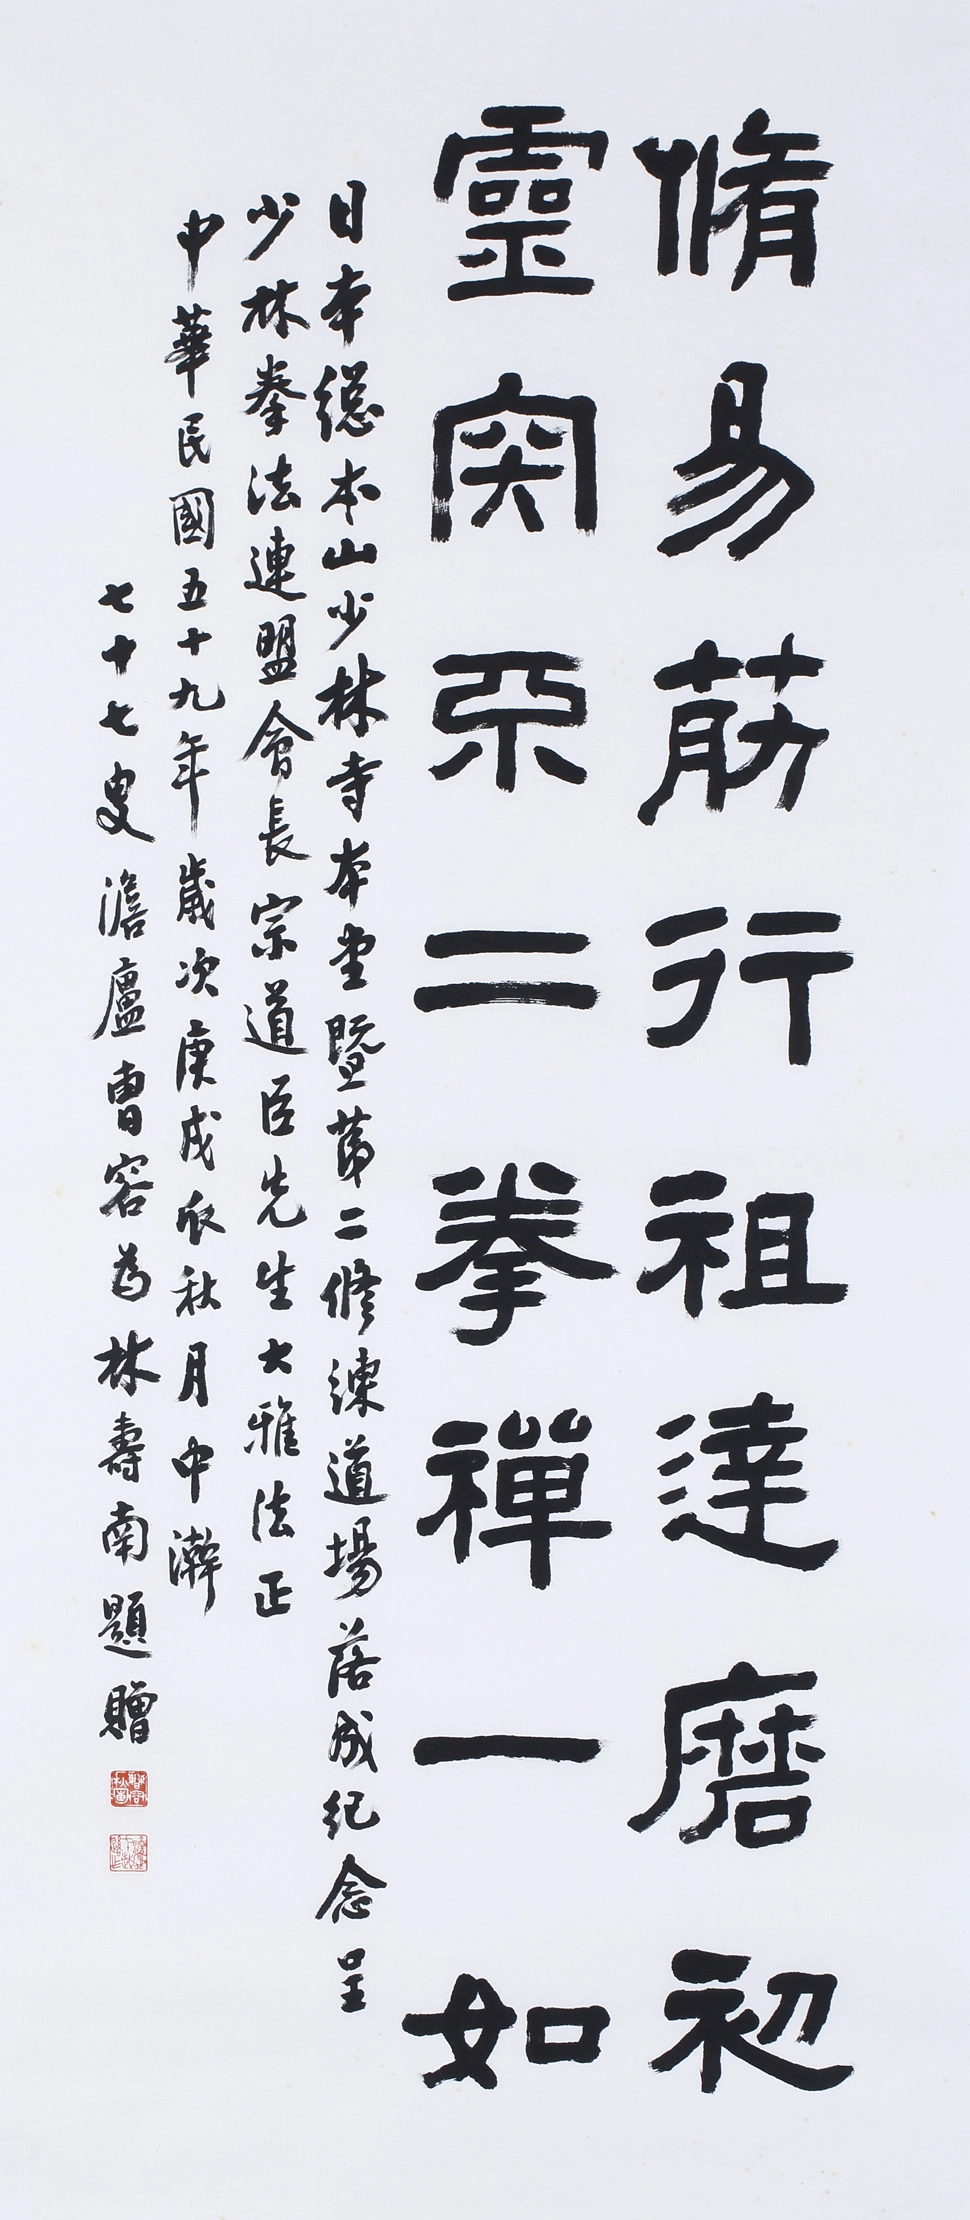 脩易筋行祖達磨初
靈突不二拳禪一如
日本總本山少林寺本堂暨第二修練道場落成紀念呈
少林拳法連盟會長宗道臣先生大雅法正
中華民國五十九年歲次庚戌秋月中澣
七十七叟澹廬曹容為林壽南題贈